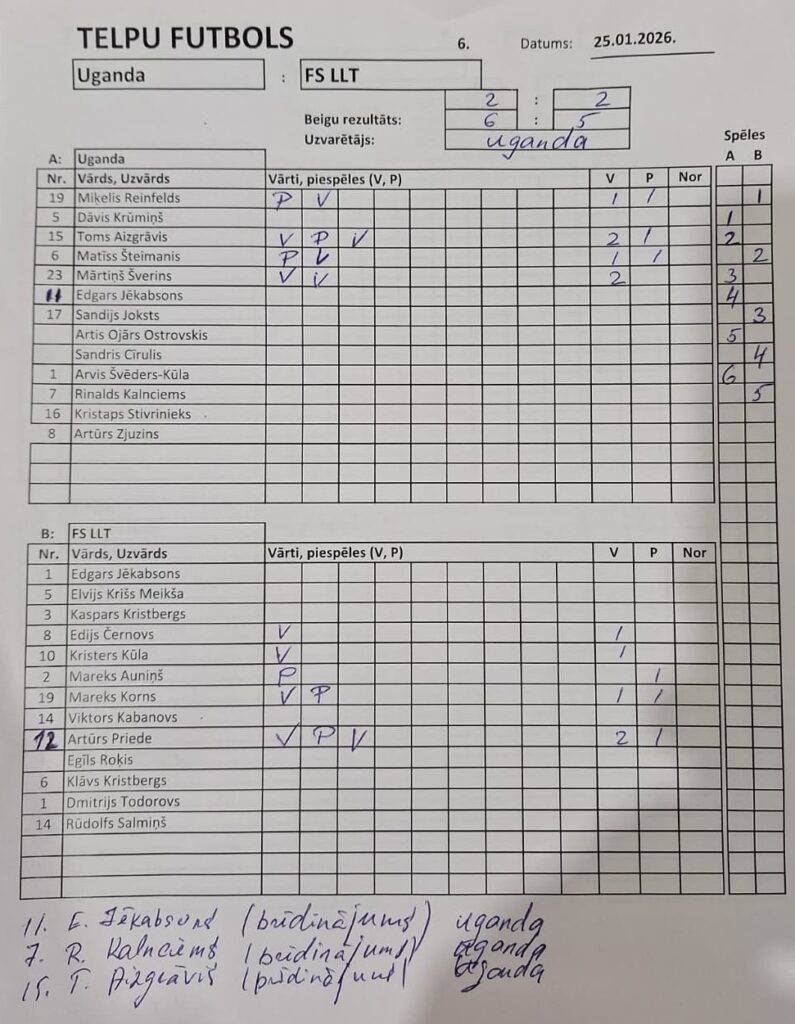 TELPU FUTBOLS 6. Datums: 25.01.2026.
Uganda : FS LLT
2 : 2
Beigu rezultāts: 6 : 5
Uzvarētājs: uganda
Spēles
A B
A: Uganda
Nr. Vārds, Uzvārds Vārti, piespēles (V, P) V P Nor
19 Miķelis Reinfelds P V 1 1 1
5 Dāvis Krūmiņš 1
15 Toms Aizgrāvis V P V 2 1 2
6 Matīss Šteimanis P V 1 1 2
23 Mārtiņš Šverins V V 2 3
11 Edgars Jēkabsons 4
17 Sandijs Joksts 3
Artis Ojārs Ostrovskis 5
Sandris Cīrulis 4
1 Arvis Švēders-Kūla 6
7 Rinalds Kalnciems 5
16 Kristaps Stivrinieks
8 Artūrs Zjuzins
B: FS LLT
Nr. Vārds, Uzvārds Vārti, piespēles (V, P) V P Nor
1 Edgars Jēkabsons
5 Elvijs Krišs Meikša
3 Kaspars Kristbergs
8 Edijs Černovs V 1
10 Kristers Kūla V 1
2 Mareks Auniņš P 1
19 Mareks Korns V P 1 1
14 Viktors Kabanovs
12 Artūrs Priede V P V 2 1
Egīls Roķis
6 Klāvs Kristbergs
1 Dmitrijs Todorovs
14 Rūdolfs Salmiņš
11. E. Jēkabsons (brīdinājums) uganda
7. R. Kalnciems (brīdinājums) uganda
15. T. Aizgrāvis (brīdinājums) uganda